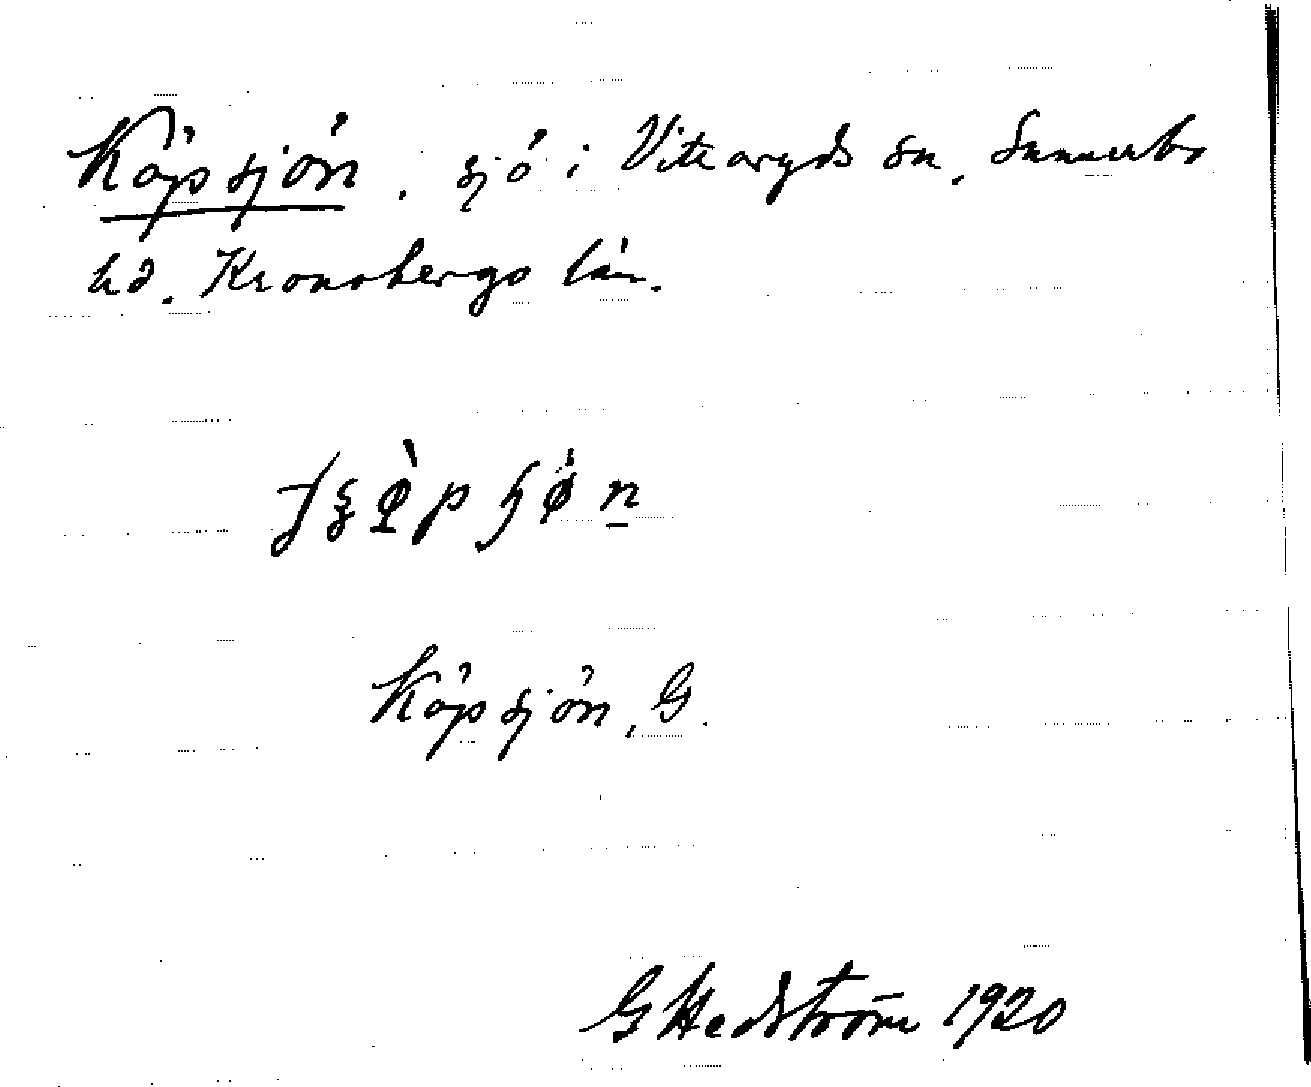 Köpsjön. sjö i Vittaryds sn, Sunnerbo
hd. Kronobergs län.
Köpsjön, G.
G Hedström 1920